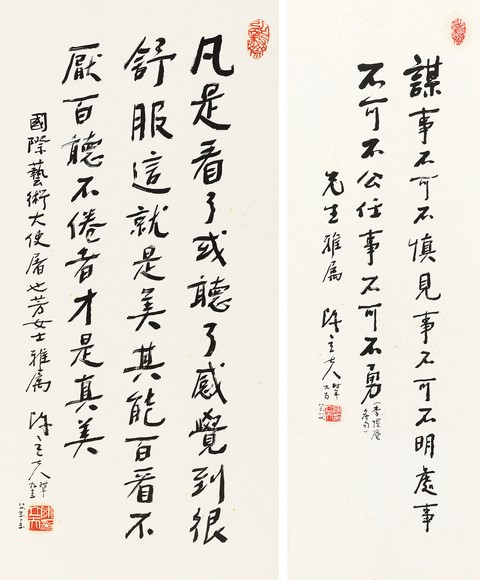 謀事不可不慎見事不可不明處事
不可不公任事不可不勇
先生雅屬 陳立夫
凡是看了或聽了感覺到很
舒服這就是美其能百看不
厭百聽不倦者才是真美
國際藝術大使屠也芳女士雅屬 陳立夫